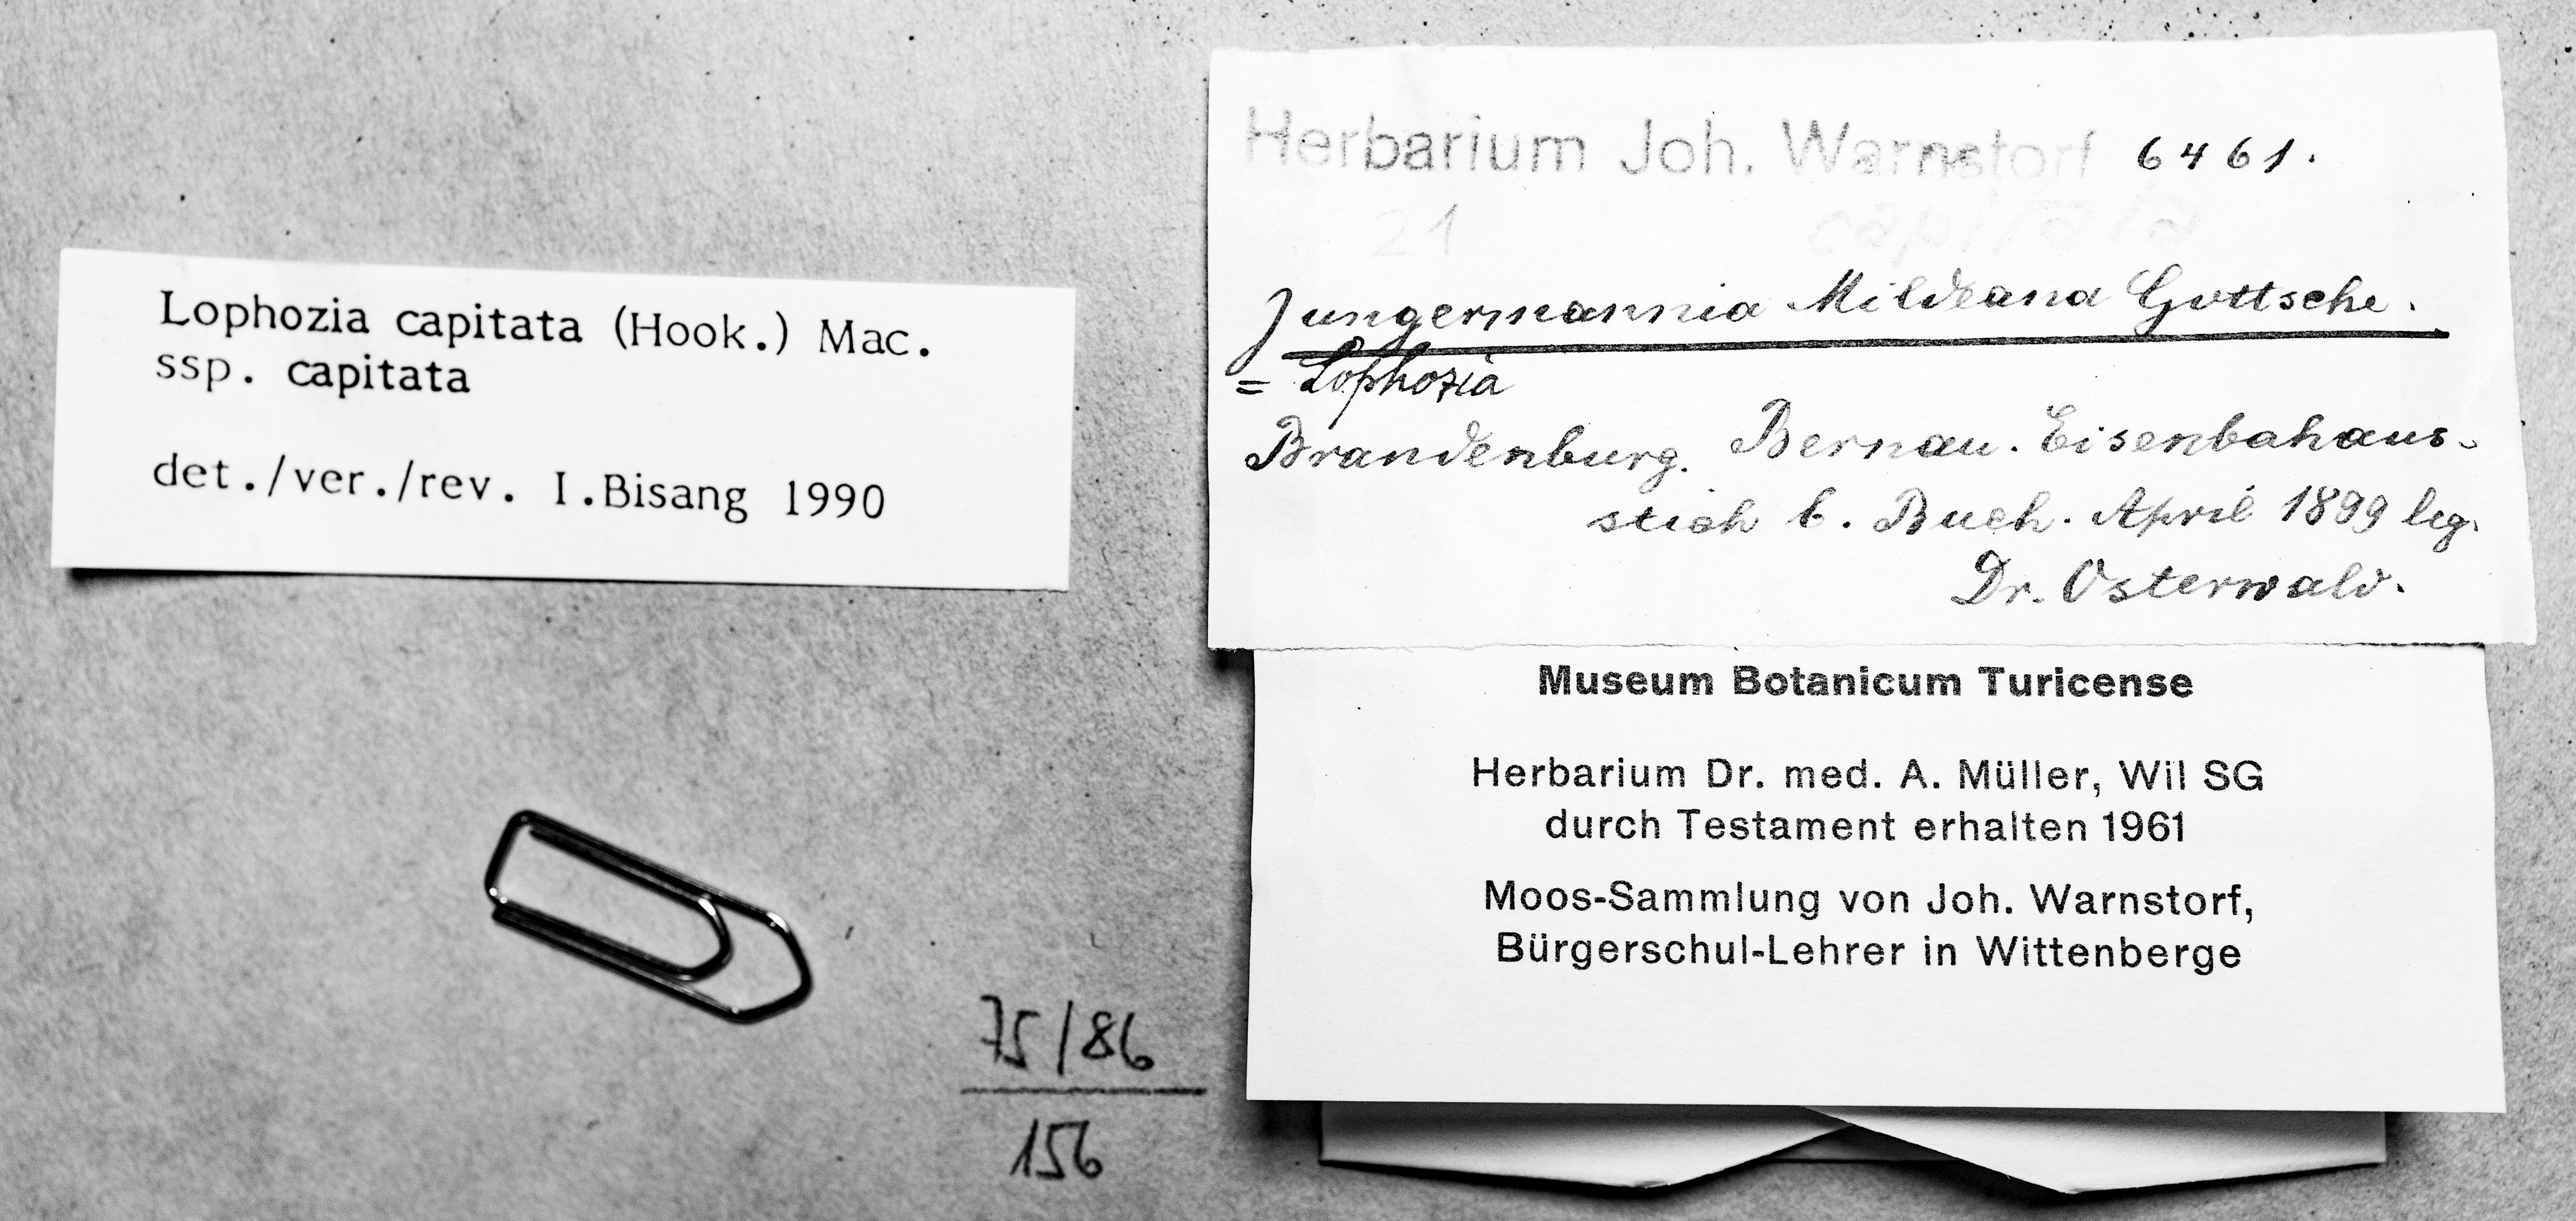 Lophozia capitata (Hook.) Mac.
ssp. capitata
det./ver./rev. I.Bisang 1990
Herbarium Joh. Warnstorf 6461.
21 capitata
Jungermannia Mildeana Gottsche.
= Lophozia
Brandenburg. Bernau. Eisenbahaus-
stich b. Buch. April 1899 leg.
Dr. Osterwald.
Museum Botanicum Turicense
Herbarium Dr. med. A. Müller, Wil SG
durch Testament erhalten 1961
Moos-Sammlung von Joh. Warnstorf,
Bürgerschul-Lehrer in Wittenberge
75/86
156